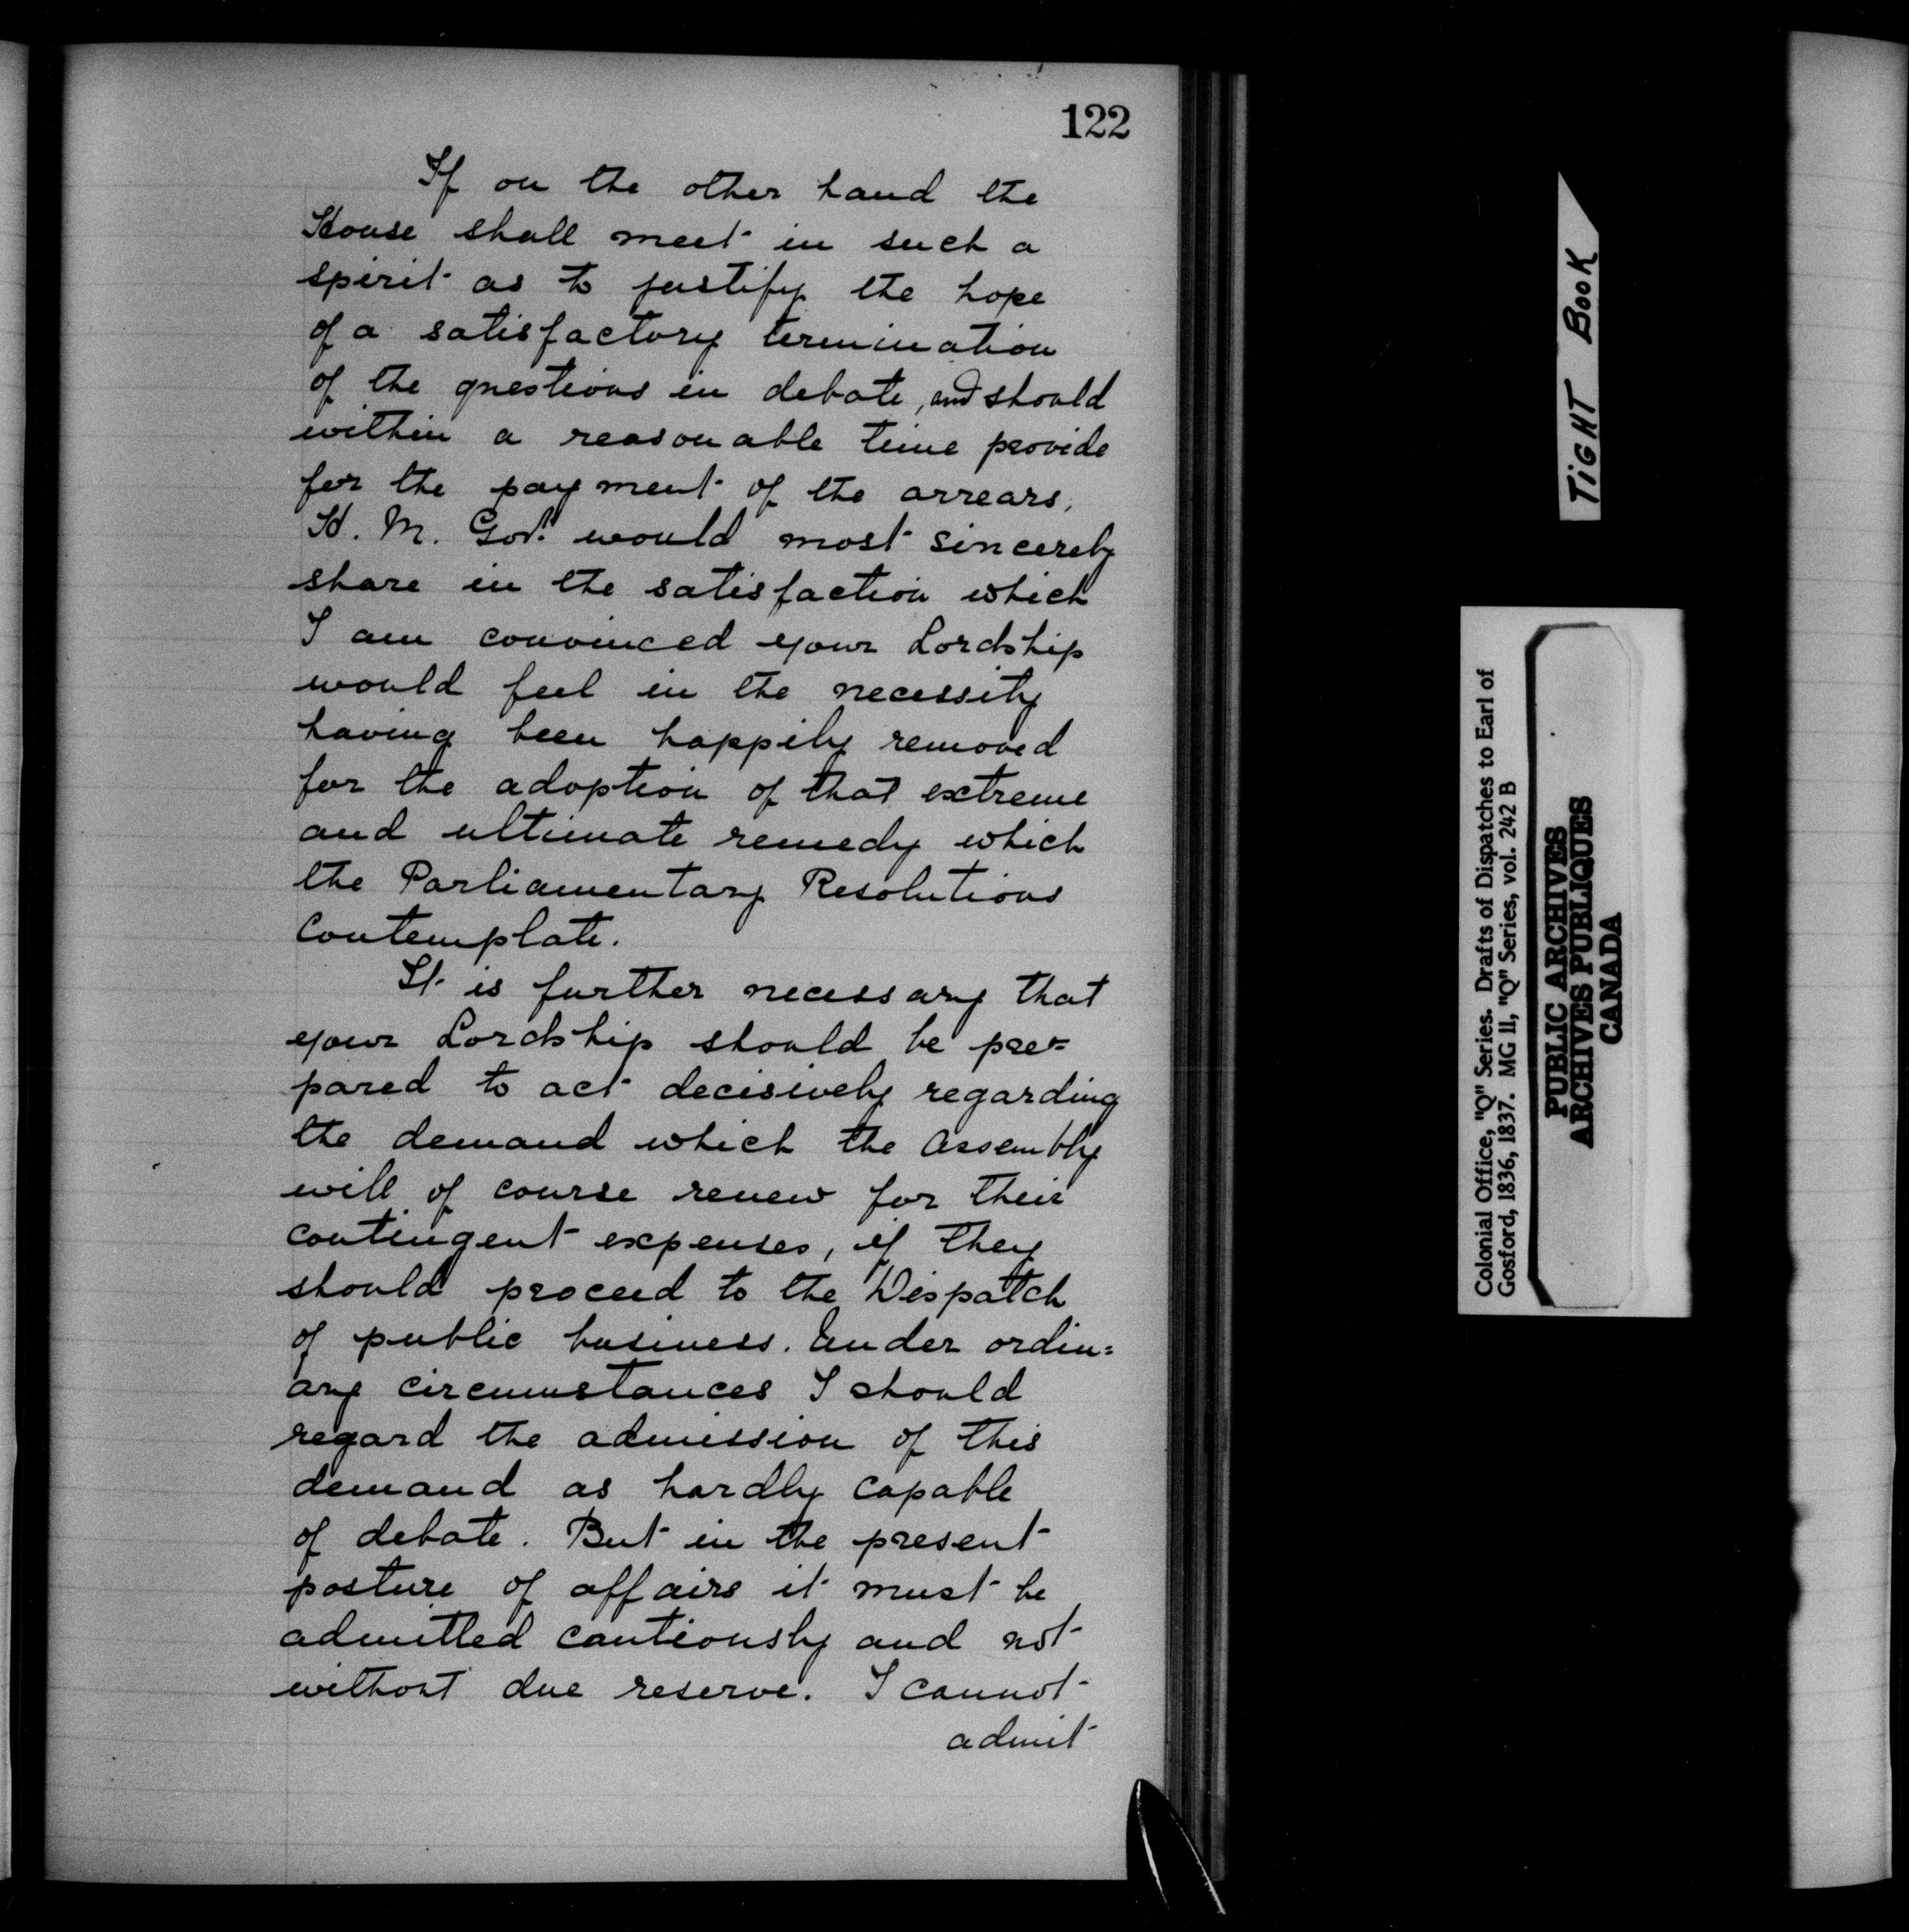 122
If on the other hand the
House shall meet in such a
spirit as to justify the hope
of a satisfactory termination
of the questions in debate, and should
within a reasonable time provide
for the payment of the arrears,
H. M. Govt. would most sincerely
share in the satisfaction which
I am convinced your Lordship
would feel in the necessity
having been happily removed
for the adoption of that extreme
and ultimate remedy which
the Parliamentary Resolutions
Contemplate.
It is further necessary that
your Lordship should be pre=
pared to act decisively regarding
the demand which the Assembly
will of course renew for their
contingent expenses, if they
should proceed to the Dispatch
of public business. Under ordin=
ary circumstances I should
regard the admission of this
demand as hardly capable
of debate. But in the present
posture of affairs it must be
admitted cautiously and not
without due reserve. I cannot
admit
TIGHT BOOK
Colonial Office, "Q" Series. Drafts of Dispatches to Earl of
Gosford, 1836, 1837. MG 11, "Q" Series, vol. 242 B
PUBLIC ARCHIVES
ARCHIVES PUBLIQUES
CANADA